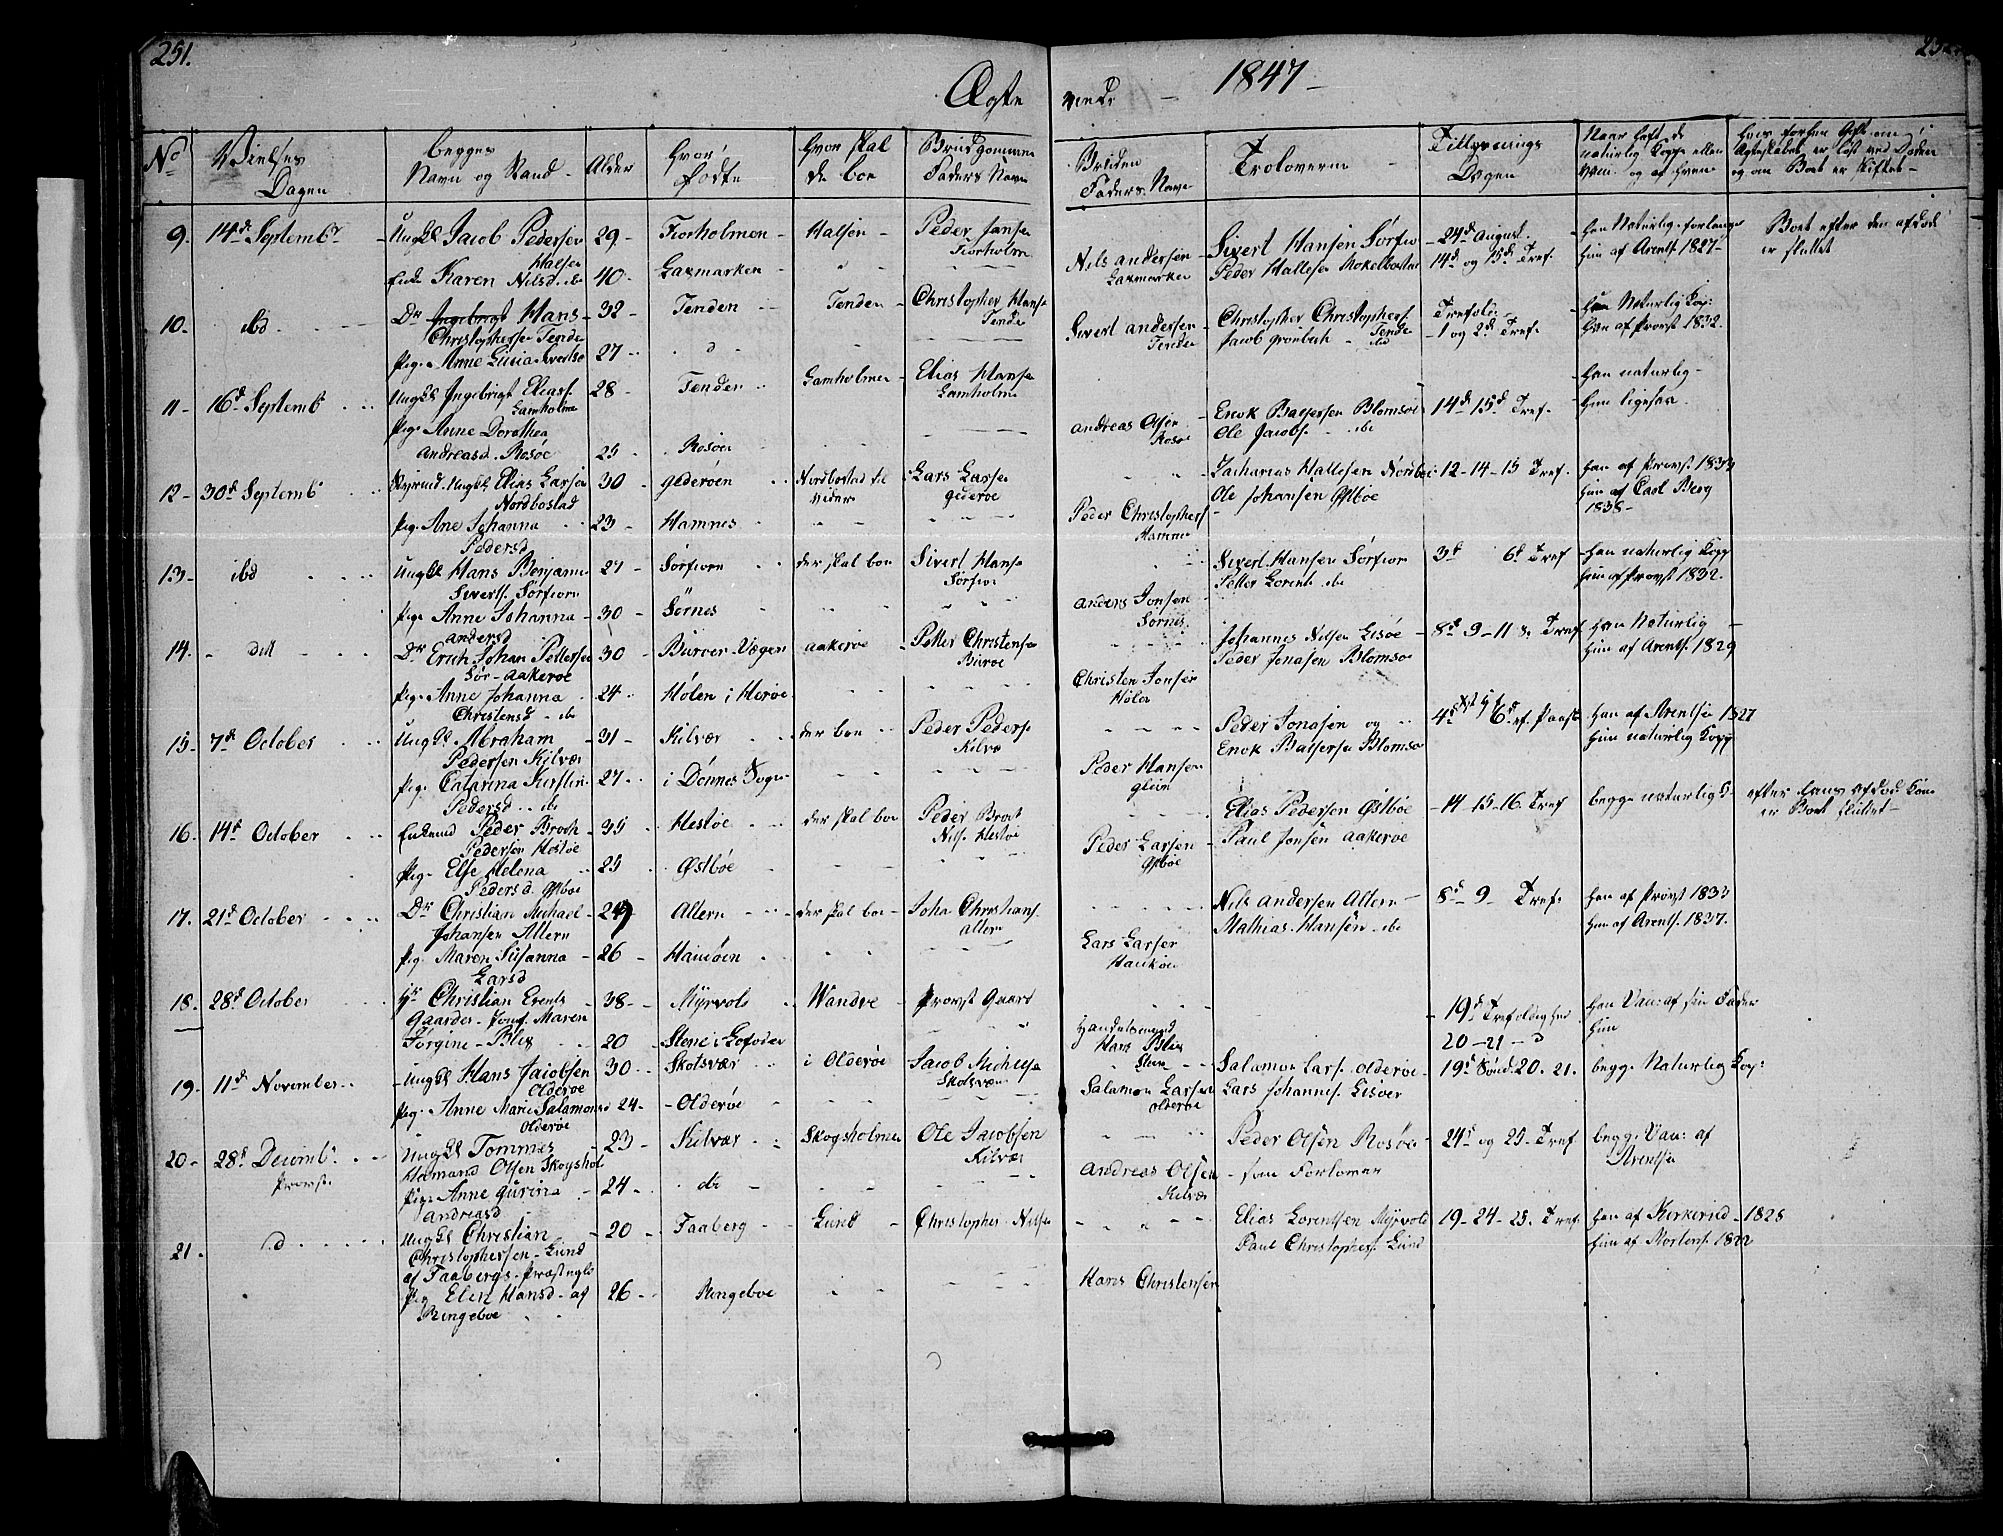 251.
Ægte
viede
1847
No
Vielses Dagen
begges Navn og Stand
Alder
hvor fødte
hvor skal de boe
Brudgommens Faders Navn
Brudens Faders Navn
Troloverne
Tillysnings Dagen
Naar haft de naturlig Kopper eller Vacc. og af hvem
9. 14d Septembr
Ungkl Jacob Pedersen Halsen
29
Fiorholmen
Halsøn
Peder Hansen Fiorholm
Sivert Hansen Sørfior
24d August
Han Naturlig
Boet efter den afdøde er sluttet
Enke Karen Nilsd. ibd
40
Laxmarken
Nils Andersen Laxmarken
Peder Hallesen
14d og 15d Tref.
Hun af Arents. 1827
10. ibd
Dr Hans Christophersen Tenden
32
Tenden
Tenden
Christopher Hansen Tenden
Christopher Christophers. Tenden
Trefoldi.
Han Naturlig Kop:
Pige Anne Lucia Sivertsd
27
Sivert Andersen Tenden
Jacob Grønbech ibd
1 og 2d Tref.
af Provst 1832.
11 16d Septemb
Ungkl Ingebrigt Eliass. Gamholmen
28
Tenden
Gamholmen
Elias Hansen Gamholm
Enok Baltsersen Blomsøe
14d 15d Tref.
Han naturlig
Pige Anne Dorothea Andreasd. Rosøe
25
Rosøen
Andreas Olsen Rosøe
Ole Jacobs. ibd
Hun ligesaa.
12 30d Septemb
Ungkl Elias Larsen Nordbostad
30
Gederøen
Nordbostad
Lars Larsen Gederøe
Zacharias Hallesen Nordbos
12-14-15 Tref.
Han af Provst 1833
Pige Ane Johanna Pedersd
23
Hamnes
Peder Christophers. Hamnes
Ole Johansen Østbøe
Hun af Carl Berg 1838
13 ibd
Ungkl Hans Benjamin Siverts. Sørfiorn
27
Sørfiorn
der skal boe
Sivert Hansen Sørfior
Sivert Hansen Sørfiorn
3d 6d Tref
Han naturlig Kopp
Pige Anne Johanna Andersd
30
Sørnes
Anders Jonsen Sørnes.
Petter Lorents. ibd
Hun af Provst 1832.
14. dito
Dr Erich Johan Pettersen Sør-Aakerøe
30
Burøer Vægen
Aakerøe
Petter Christensen Burøe
Johannes Nilsen Lisøe
8d 9-11 S. Tref
Han Naturlig
Pige Anne Johanna Christensd ibd
24
Hølen i Herøe
Christen Jonsen Hølen
Peder Jonasen Blomsøe
Hun af Arents. 1829
15 7d October
Ungkl Abraham Pedersen Kilvær
31
Kilvær
der boe
Peder Pedersen Kilvær
Peder Jonasen og
Han af Arentsen 1827
Pige Catarina Kirstine Pedersd ibd
27
i Dønnes Sogn
Peder Hansen Glein
Enok Baltsersen Blomsøe
Hun naturlig Kopp
16. 14d October
Enkemd Peder Broch Pedersen Hestøe
35
Hestøe
der skal boe
Peder Broch Nils. Hestøe
Elias Pedersen Østbøe
14-15-16. Tref
begge naturlig K.
efter hans afdøde Kone er Boet sluttet
Pige Else Helena Pedersd. Østbøe
25
Østbøe
Peder Larsen Østbøe
Paul Jonsen Aakerøe
17. 21d October
Dr Christian Michael Johansen Altern
29
Altern
der skal boe
Joha. Christians. Altern
Nils Andersen Altern
8d 9 Tref.
Han af Provst 1833
Pige Maren Susanna Larsd
26
Hauøen
Lars Larsen
Mathias Hansen ibd
Hun af Arents. 1837.
18. 28d October
Hr Christian Events Gaarder Jomf. Maren Jørgine Blix
38
Myrvold
Wandve
Provst Gaard
19d Trefoldighed
Han Vac: af sin Fader
20
Stene i Lofoden
Handelsmand Hans Blix Steen
20-21 d
Hun
19. 11d November
Ungkl Hans Jacobsen Olderøe
30
Skotsvær
i Olderøe
Jacob Michelsen Skotsvær
Salamon Lars. Olderøe
19d Sønd. 20. 21.
begge Naturlig Kop:
Pige Anne Marie Salamonsd Olderøe
24
Olderøe
Salamon Larsen Olderøe
Lars Johannes. Lisøer
20 28d Decemb.
Ungkl Tommas Hamand Olsen Skogshol
23
Kilvær
Skogsholmen
Ole Jacobsen Kilvær
Peder Olsen Rosøe
24d og 25 Tref
begge Vac: af Arentsen
Pige Anne Gurina Andreasd
24
ibd
Andreas Olsen Kilvær
som Forlover
21. d
Ungkl Christian Christophersen Lund af Faabergs Præstegld
20
Faaberg
Lund
Christopher Nilsen
Elias Lorentsen Myrvold
19-24-25. Tref.
Han af Kirkerud 1828
Pig Elen Hansd af Ringeboe
26
Ringeboe
Hans Christensen
Paul Christophers. Lund
Hun af Mortens. 1822